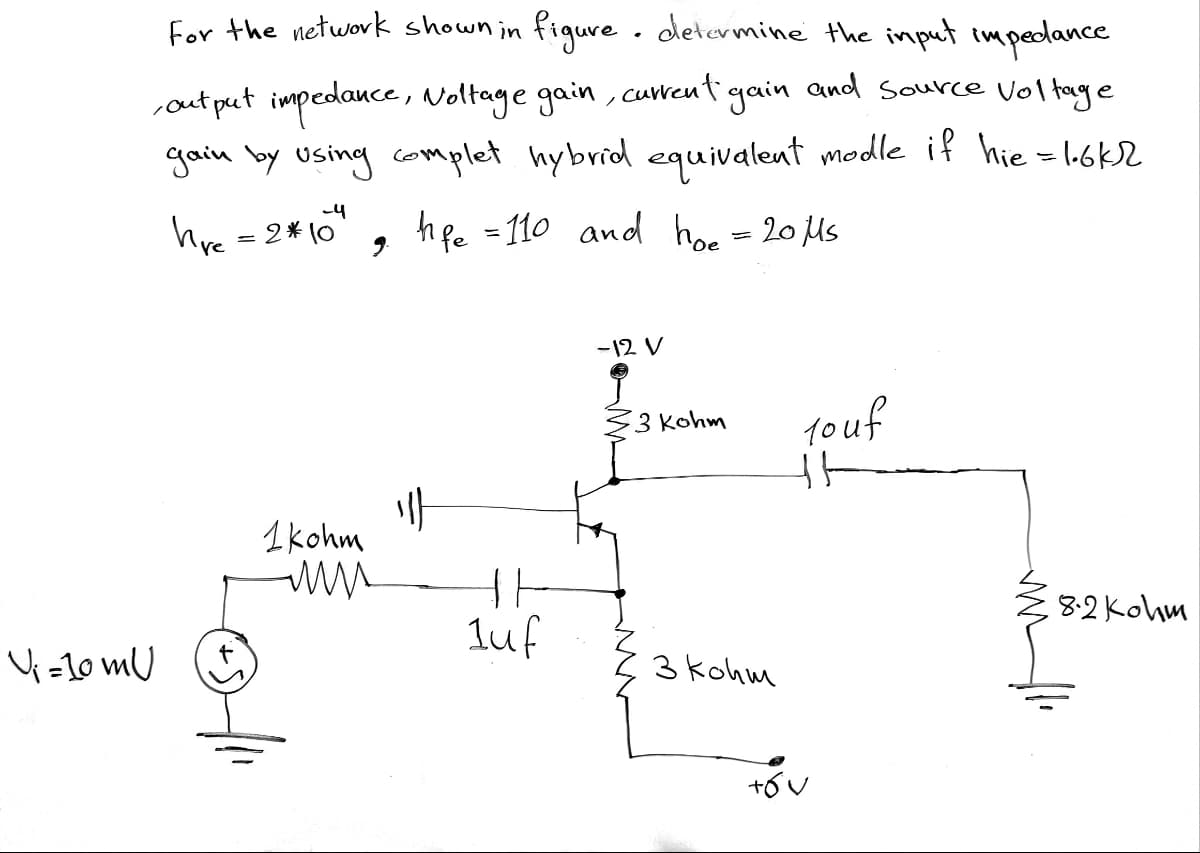 For the network shown in figure. determine the input impedance
, output impedance, Voltage gain, current gain and source Voltage
gain by using complet hybrid equivalent modle if hie = 1.6kΩ
hre = 2*10⁻⁴, hfe = 110 and hoe = 20 μs
-12 V
3 kohm
10uf
1kohm
1uf
8.2 Kohm
Vi = 10 mV
+
3 kohm
+6 V